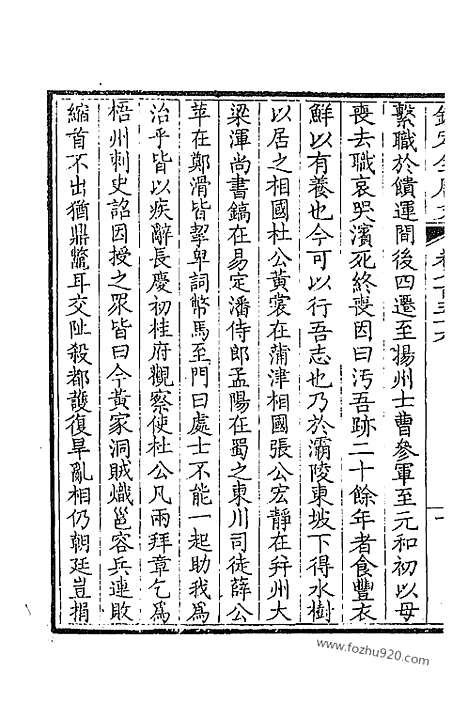 繫職於饋運間後四遷至揚州士曹參軍至元和初以母
喪去職哀哭濱死終喪因曰汚吾跡二十餘年者食豐衣
鮮以有養也今可以行吾志也乃於灞陵東坡下得水樹
以居之相國杜公黃裳在蒲津相國張公宏靜在幷州大
梁渾尚書鎬在易定潘侍郎孟陽在蜀之東川司徒薛公
苹在鄭滑皆挈卑詞幣馬至門曰處士不能一起助我爲
治乎皆以疾辭長慶初桂府觀察使杜公凡兩拜章乞爲
梧州刺史詔因授之眾皆曰今黃家洞賊熾邕容兵連敗
縮首不出猶鼎鼈耳交阯殺都護復旱亂相仍朝廷豈捐
www.fozhu920.com